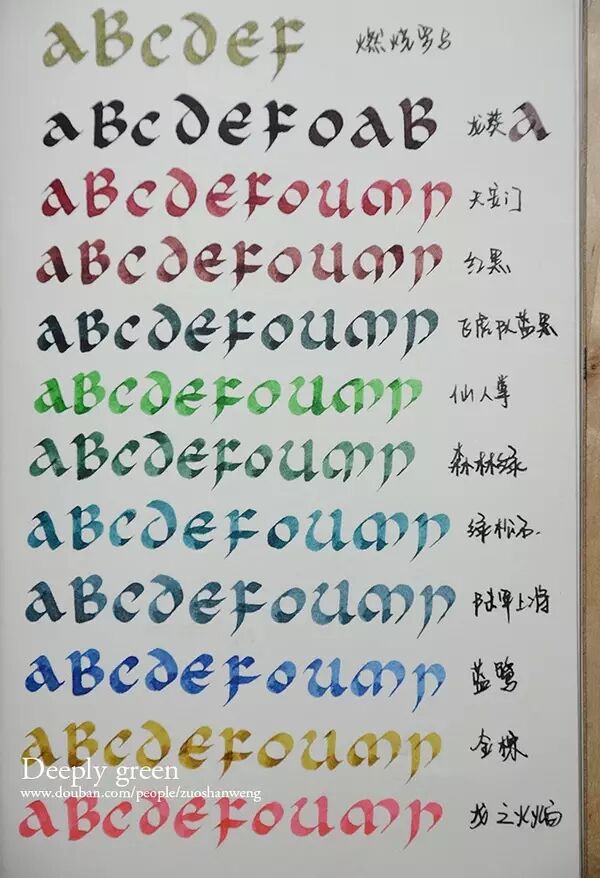 aBcdEF 燃烧罗马
aBcdEFoaB 龙葵 a
aBcdEFoump 天安门
aBcdEFoump 红黑
aBcdEFoump 飞虎队蓝黑
aBcdEFoump 仙人掌
aBcdEFoump 森林绿
aBcdEFoump 绿松石.
aBcdEFoump 陆军上将
aBcdEFoump 蓝鹭
aBcdEFoump 金
Deeply green
www.douban.com/people/zuoshanweng
aBcdEFoump 龙之火焰